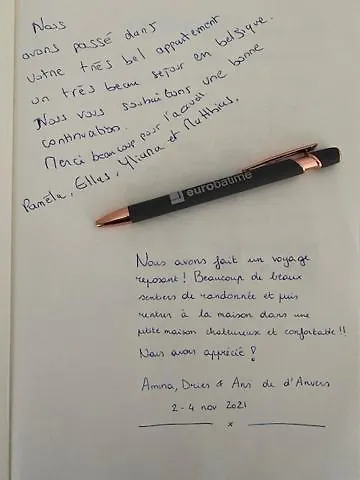 Nous
avons passé dans
votre très bel appartement
un très beau séjour en belgique.
Nous vous souhaitons une bonne
continuation.
Merci beaucoup pour l'accueil
Paméla, Elias, Yliana et Matthias.
eurobatime
Nous avons fait un voyage
reposant! Beaucoup de beaux
sentiers de randonnée et puis
rentrer à la maison dans une
petite maison chaleureux et confortable!!
Nous avons apprécié!
Amina, Dries & Ans de d'Anvers
2-4 nov 2021
x